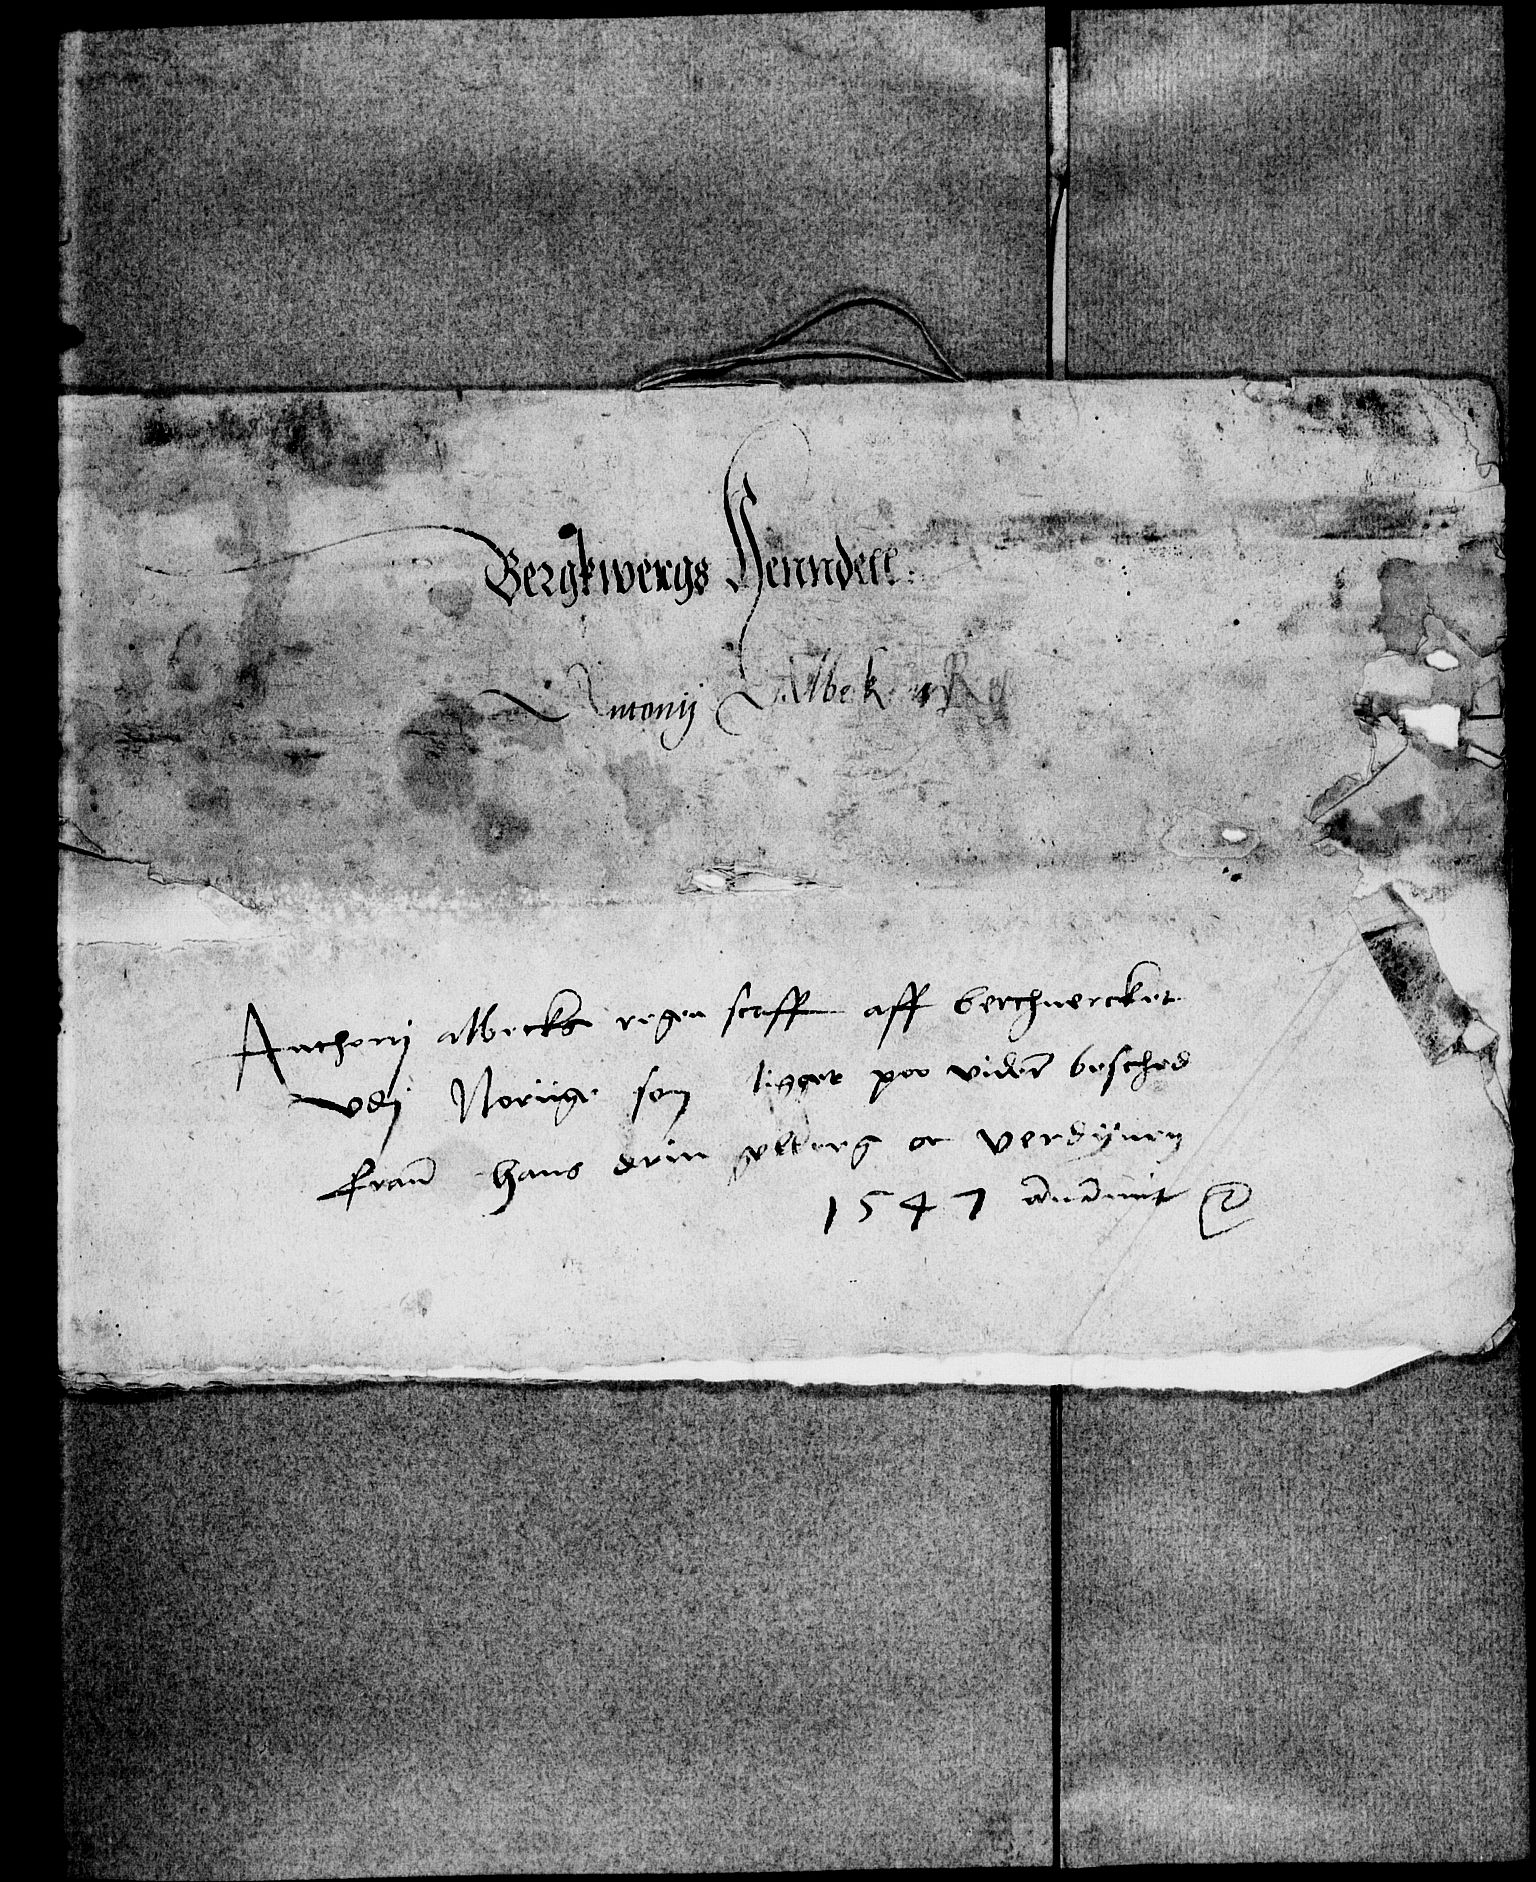 Bergkwergs Henndell.
Antonij Albek
Anthonij albecks regen scaff aff berchuercket
vdj Noriige som ligger poo viderᷓ besched
fran hans drin gelberg oc verdijnen
1547